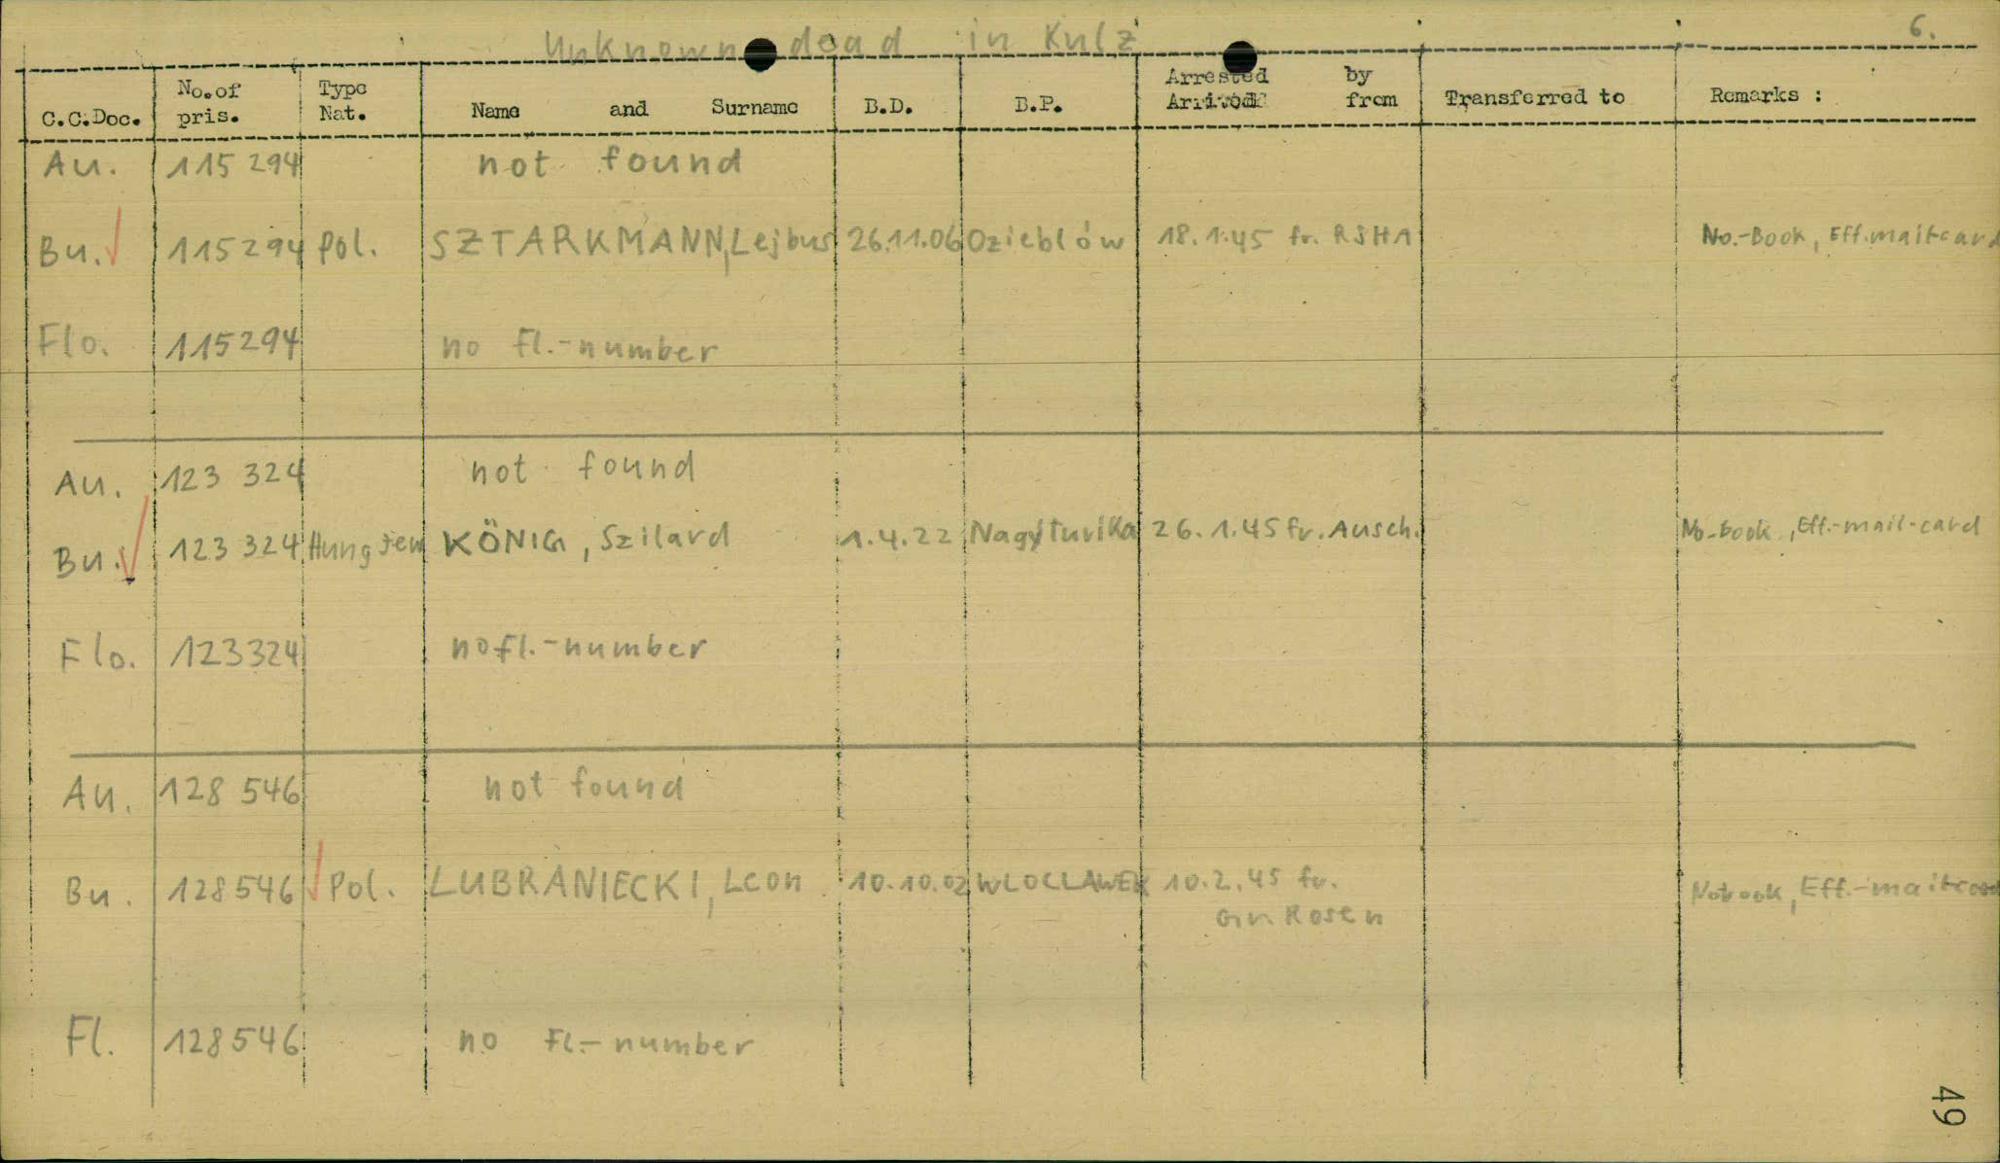 Unknown dead in Kulz 6.
C.C.Doc. No.of pris. Type Nat. Name and Surname B.D. B.P. Arrested by Arrived from Transferred to Remarks :
Au. 115 294 not found
Bu. 115294 Pol. SZTARKMANN, Lejbus 26.11.06 Ozieblów 18.1.45 fr. RSHA No.-Book, Eff.mailcard
Flo. 115294 no Fl.-number
Au. 123 324 not found
Bu. 123 324 Hung Jew KÖNIG, Szilard 1.4.22 Nagyturika 26.1.45 fr. Ausch. No-book, Eff.-mail-card
Flo. 123324 no fl.-number
Au. 128 546 not found
Bu. 128546 Pol. LUBRANIECKI, Leon 10.10.02 WLOCLAWEK 10.2.45 fr.
Rosen
Nobook, Eff.-mailcard
Fl. 128546 no Fl.-number
49